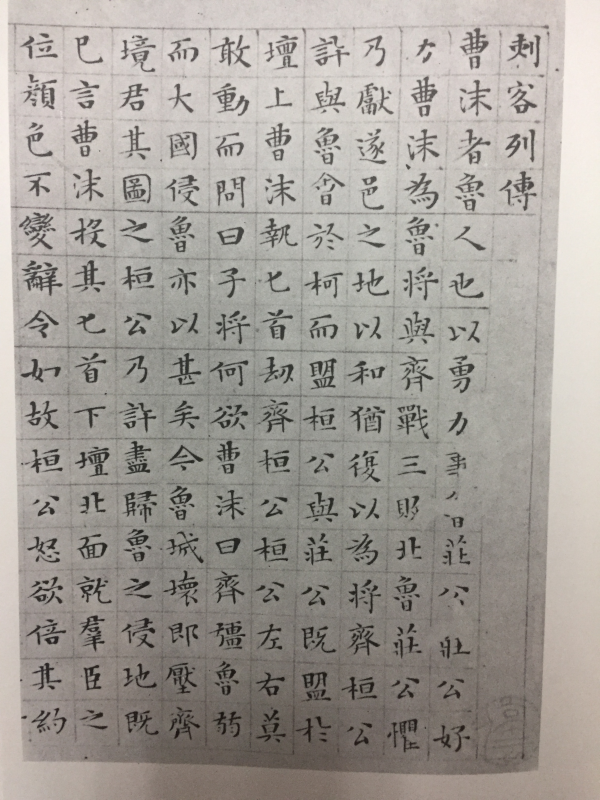 刺客列傳
曹沫者魯人也以勇力事魯莊公莊公好
力曹沫為魯將與齊戰三敗北魯莊公懼
乃獻遂邑之地以和猶復以為將齊桓公
許與魯會於柯而盟桓公與莊公既盟於
壇上曹沫執匕首劫齊桓公桓公左右莫
敢動而問曰子將何欲曹沫曰齊彊魯弱
而大國侵魯亦以甚矣今魯城壞即壓齊
境君其圖之桓公乃許盡歸魯之侵地既
已言曹沫投其匕首下壇北面就羣臣之
位顏色不變辭令如故桓公怒欲倍其約